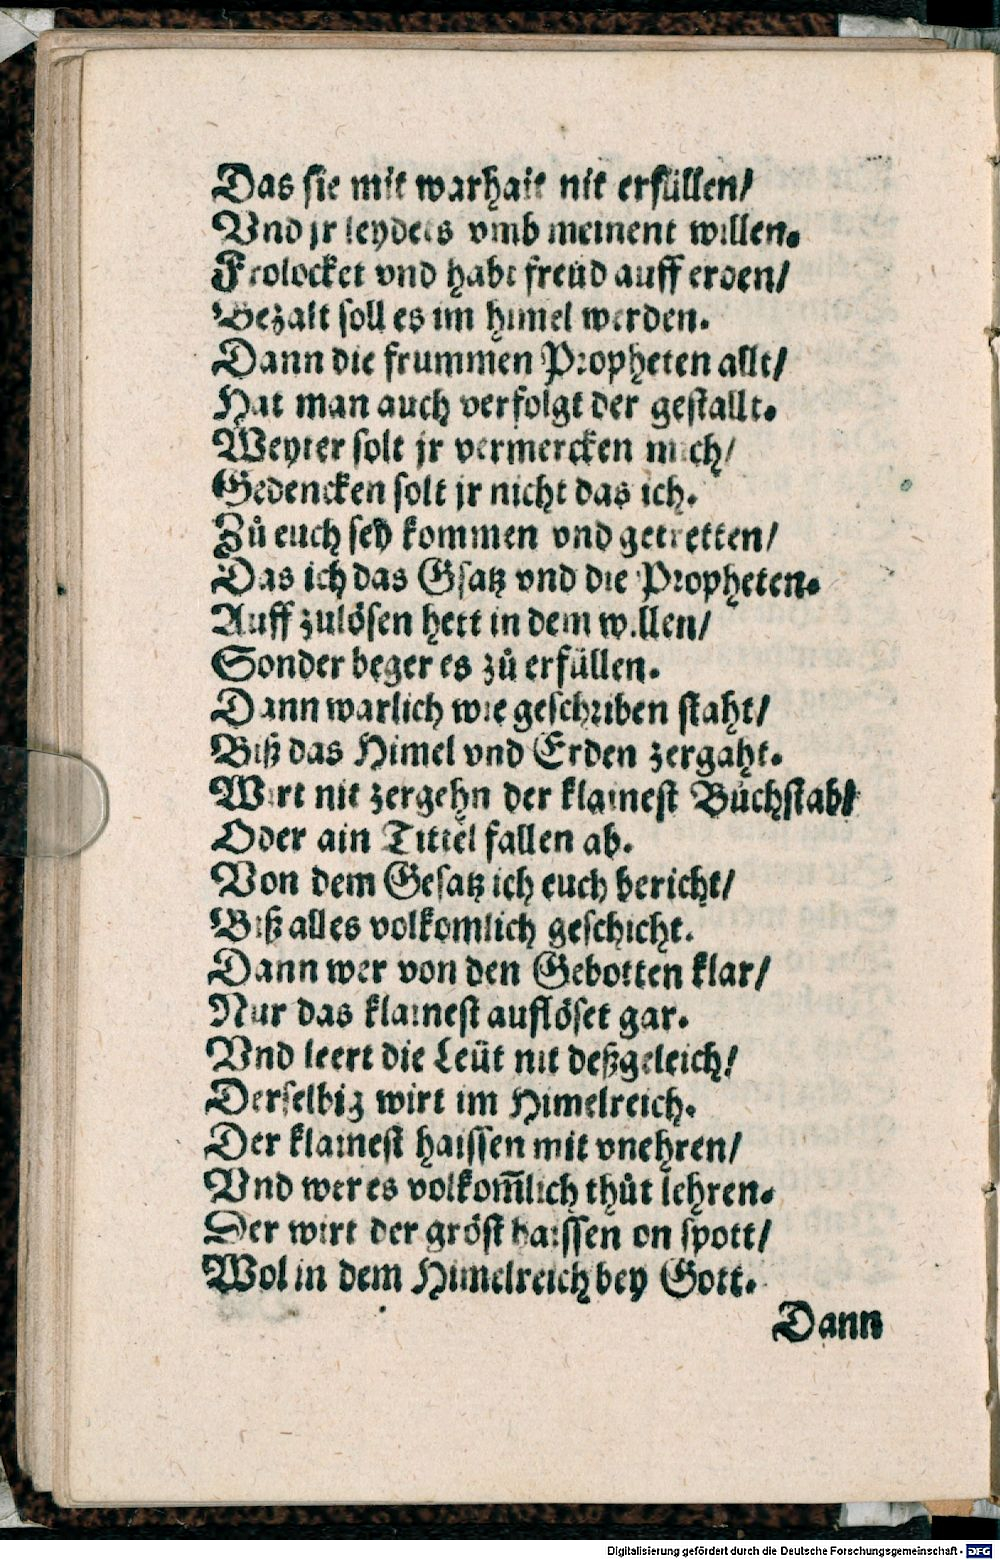 Das sie mit warhait nit erfüllen/
Vnd jr leydets vmb meinent willen.
Frolocket vnd habt freüd auff erden/
Bezalt soll es im himel werden.
Dann die frummen Propheten allt/
Hat man auch verfolgt der gestallt.
Weyter solt jr vermercken mich/
Gedencken solt jr nicht das ich.
Zů euch sey kommen vnd getretten/
Das ich das Gsatz vnd die Propheten.
Auff zulösen hett in dem willen/
Sonder beger es zů erfüllen.
Dann warlich wie geschriben staht/
Biß das Himel vnd Erden zergaht.
Wirt nit zergehn der klainest Bůchstab/
Oder ain Tittel fallen ab.
Von dem Gesatz ich euch bericht/
Biß alles volkomlich geschicht.
Dann wer von den Gebotten klar/
Nur das klainest auflöset gar.
Vnd leert die Leüt nit deßgeleich/
Derselbig wirt im Himelreich.
Der klainest haissen mit vnehren/
Vnd wer es volkom̃lich thůt lehren.
Der wirt der gröst haissen on spott/
Wol in dem Himelreich bey Gott.
Dann
Digitalisierung gefördert durch die Deutsche Forschungsgemeinschaft - DFG